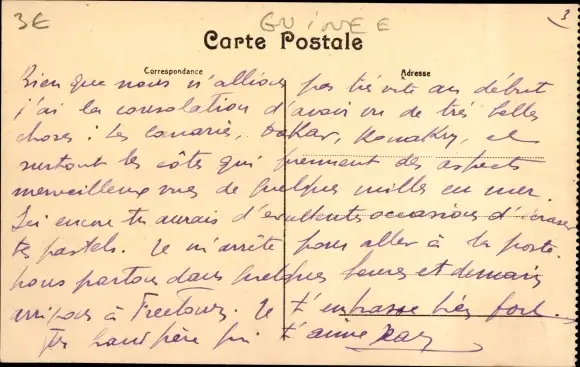 3€
GUINEE
3
Carte Postale
Correspondance
Adresse
Bien que nous n'allions pas très vite au début
j'ai la consolation d'avoir vu de très belles
choses : Les Canaries, Dakar, Konakry, et
surtout les côtes qui prennent des aspects
merveilleux vues de quelques milles en mer.
Ici encore tu aurais d'excellentes occasions d'écraser
tes pastels. Je m'arrête pour aller à la poste.
Nous partons dans quelques heures et demain
arrivons à Freetown. Je t'embrasse très fort.
Ton grand père qui t'aime